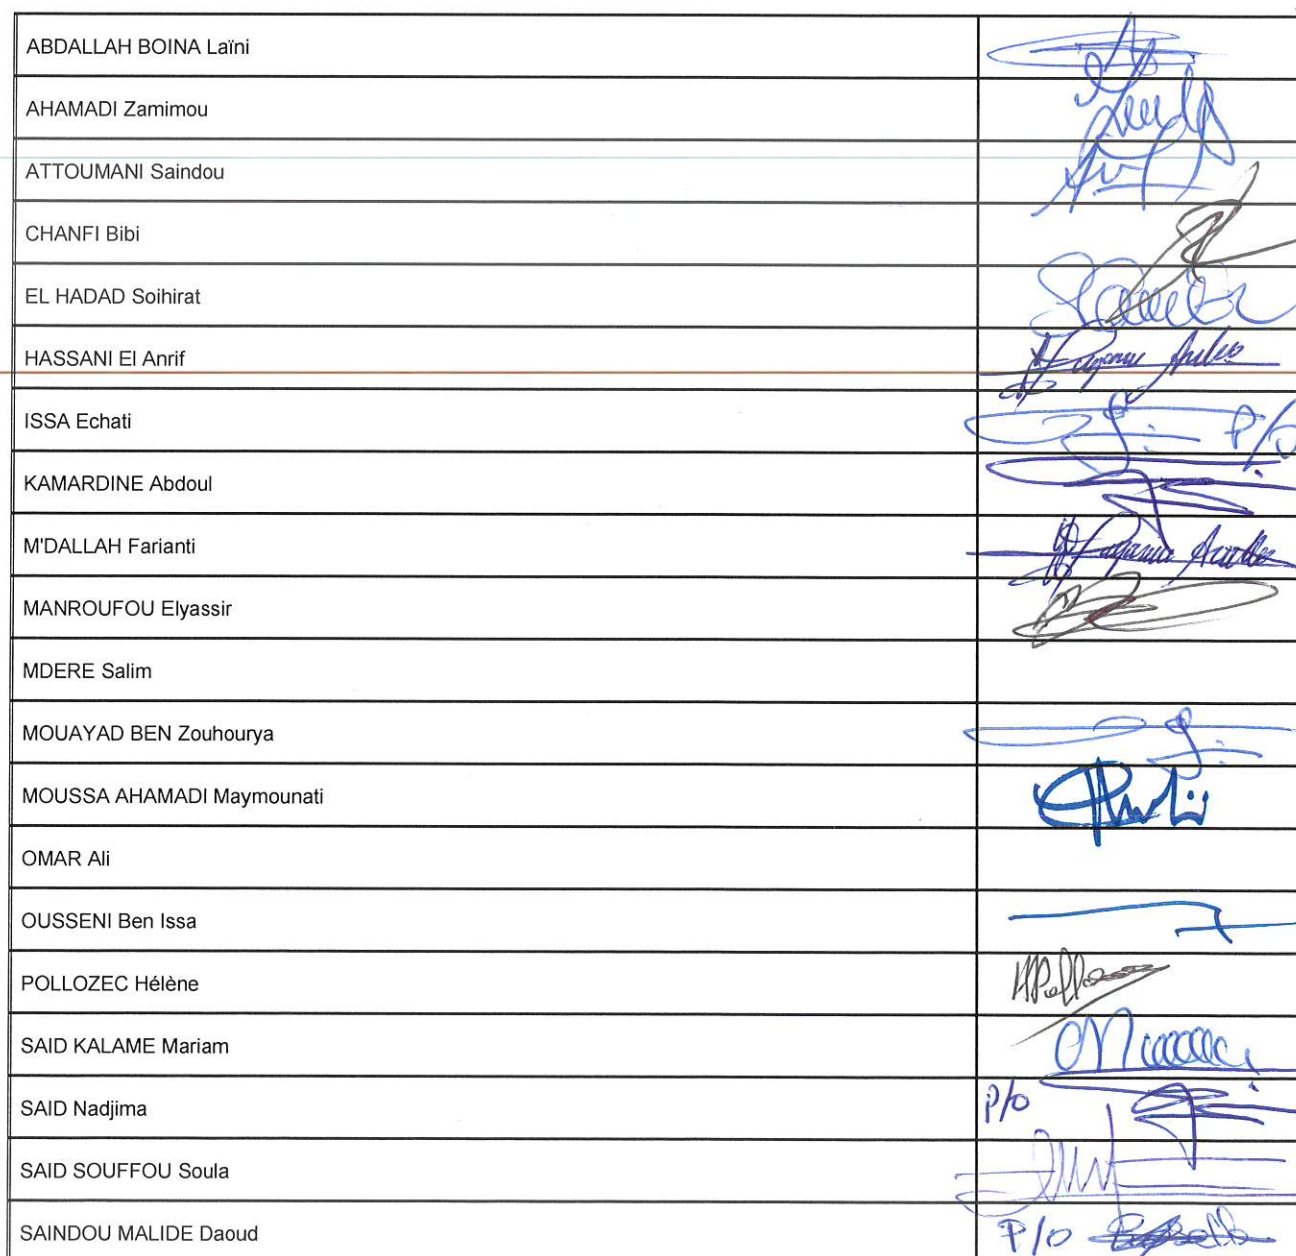 ABDALLAH BOINA Laïni
AHAMADI Zamimou
ATTOUMANI Saindou
CHANFI Bibi
EL HADAD Soihirat
HASSANI El Anrif
ISSA Echati P/O
KAMARDINE Abdoul
M'DALLAH Farianti
MANROUFOU Elyassir
MDERE Salim
MOUAYAD BEN Zouhourya
MOUSSA AHAMADI Maymounati
OMAR Ali
OUSSENI Ben Issa
POLLOZEC Hélène
SAID KALAME Mariam
SAID Nadjima P/O
SAID SOUFFOU Soula
SAINDOU MALIDE Daoud P/O